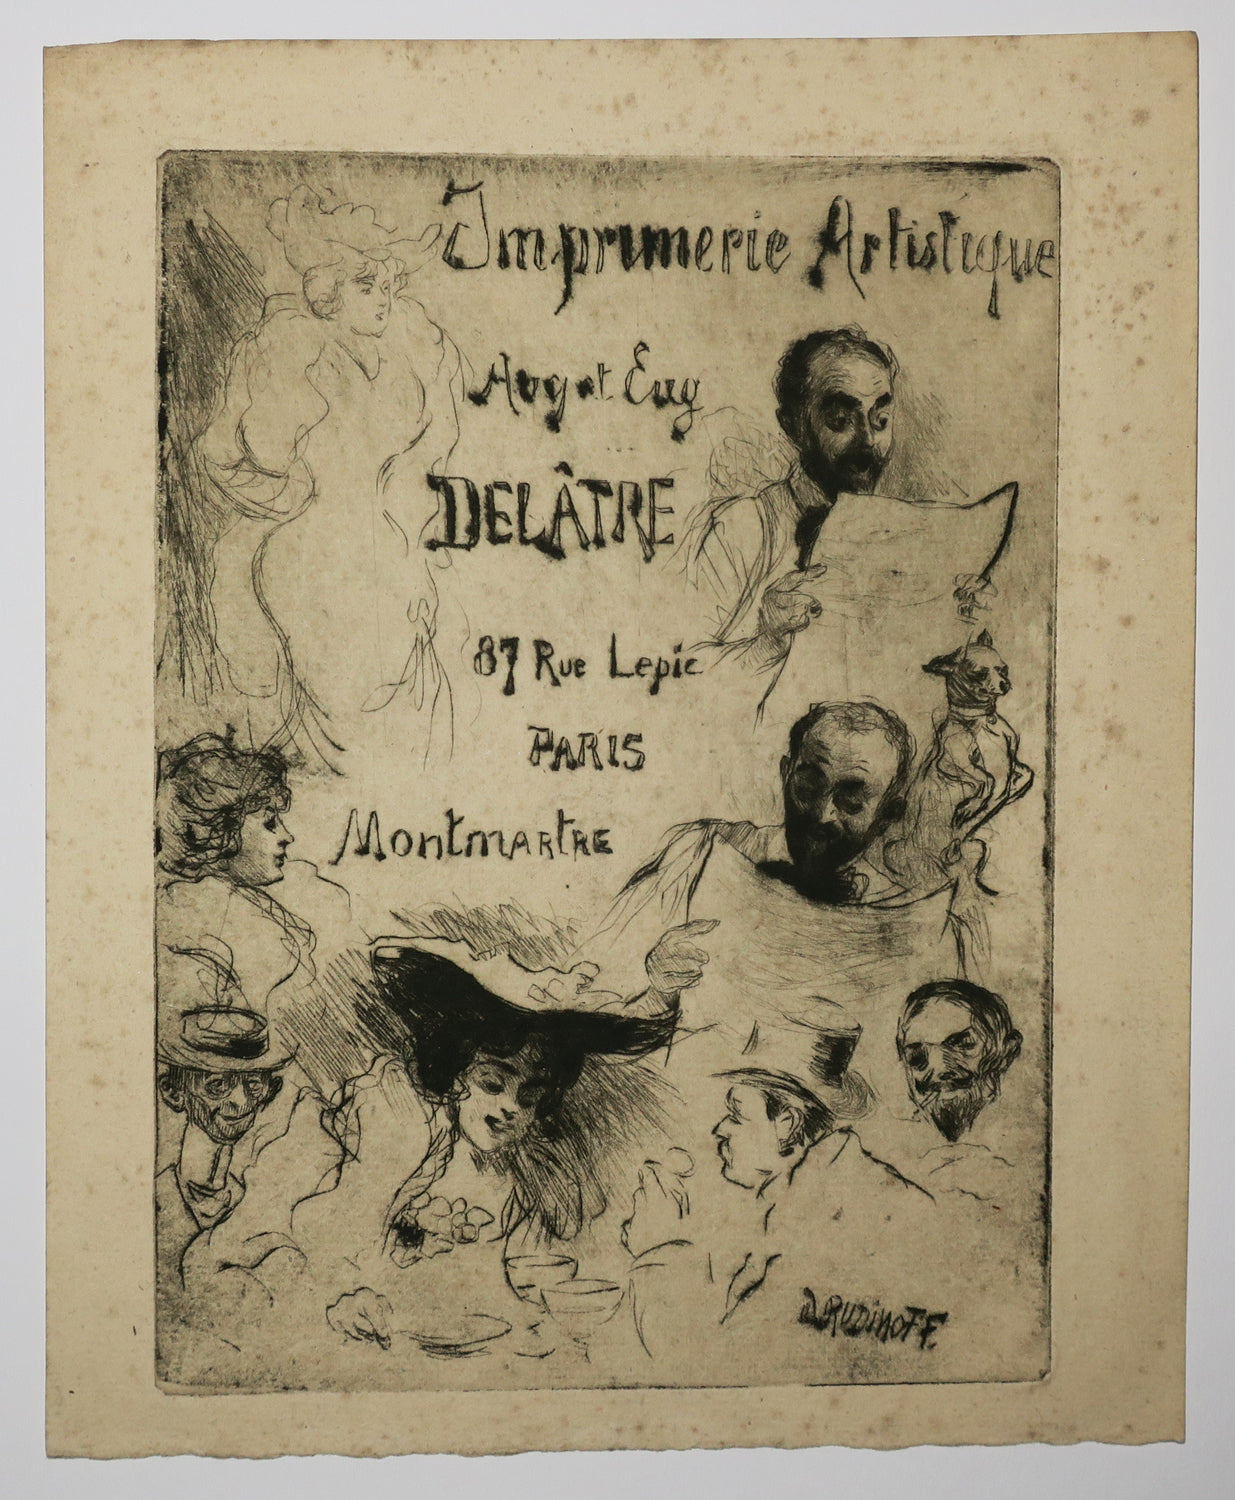 Imprimerie Artistique
Aug et Eug
DELÂTRE
87 Rue Lepic
PARIS
Montmartre
RUDINOFF